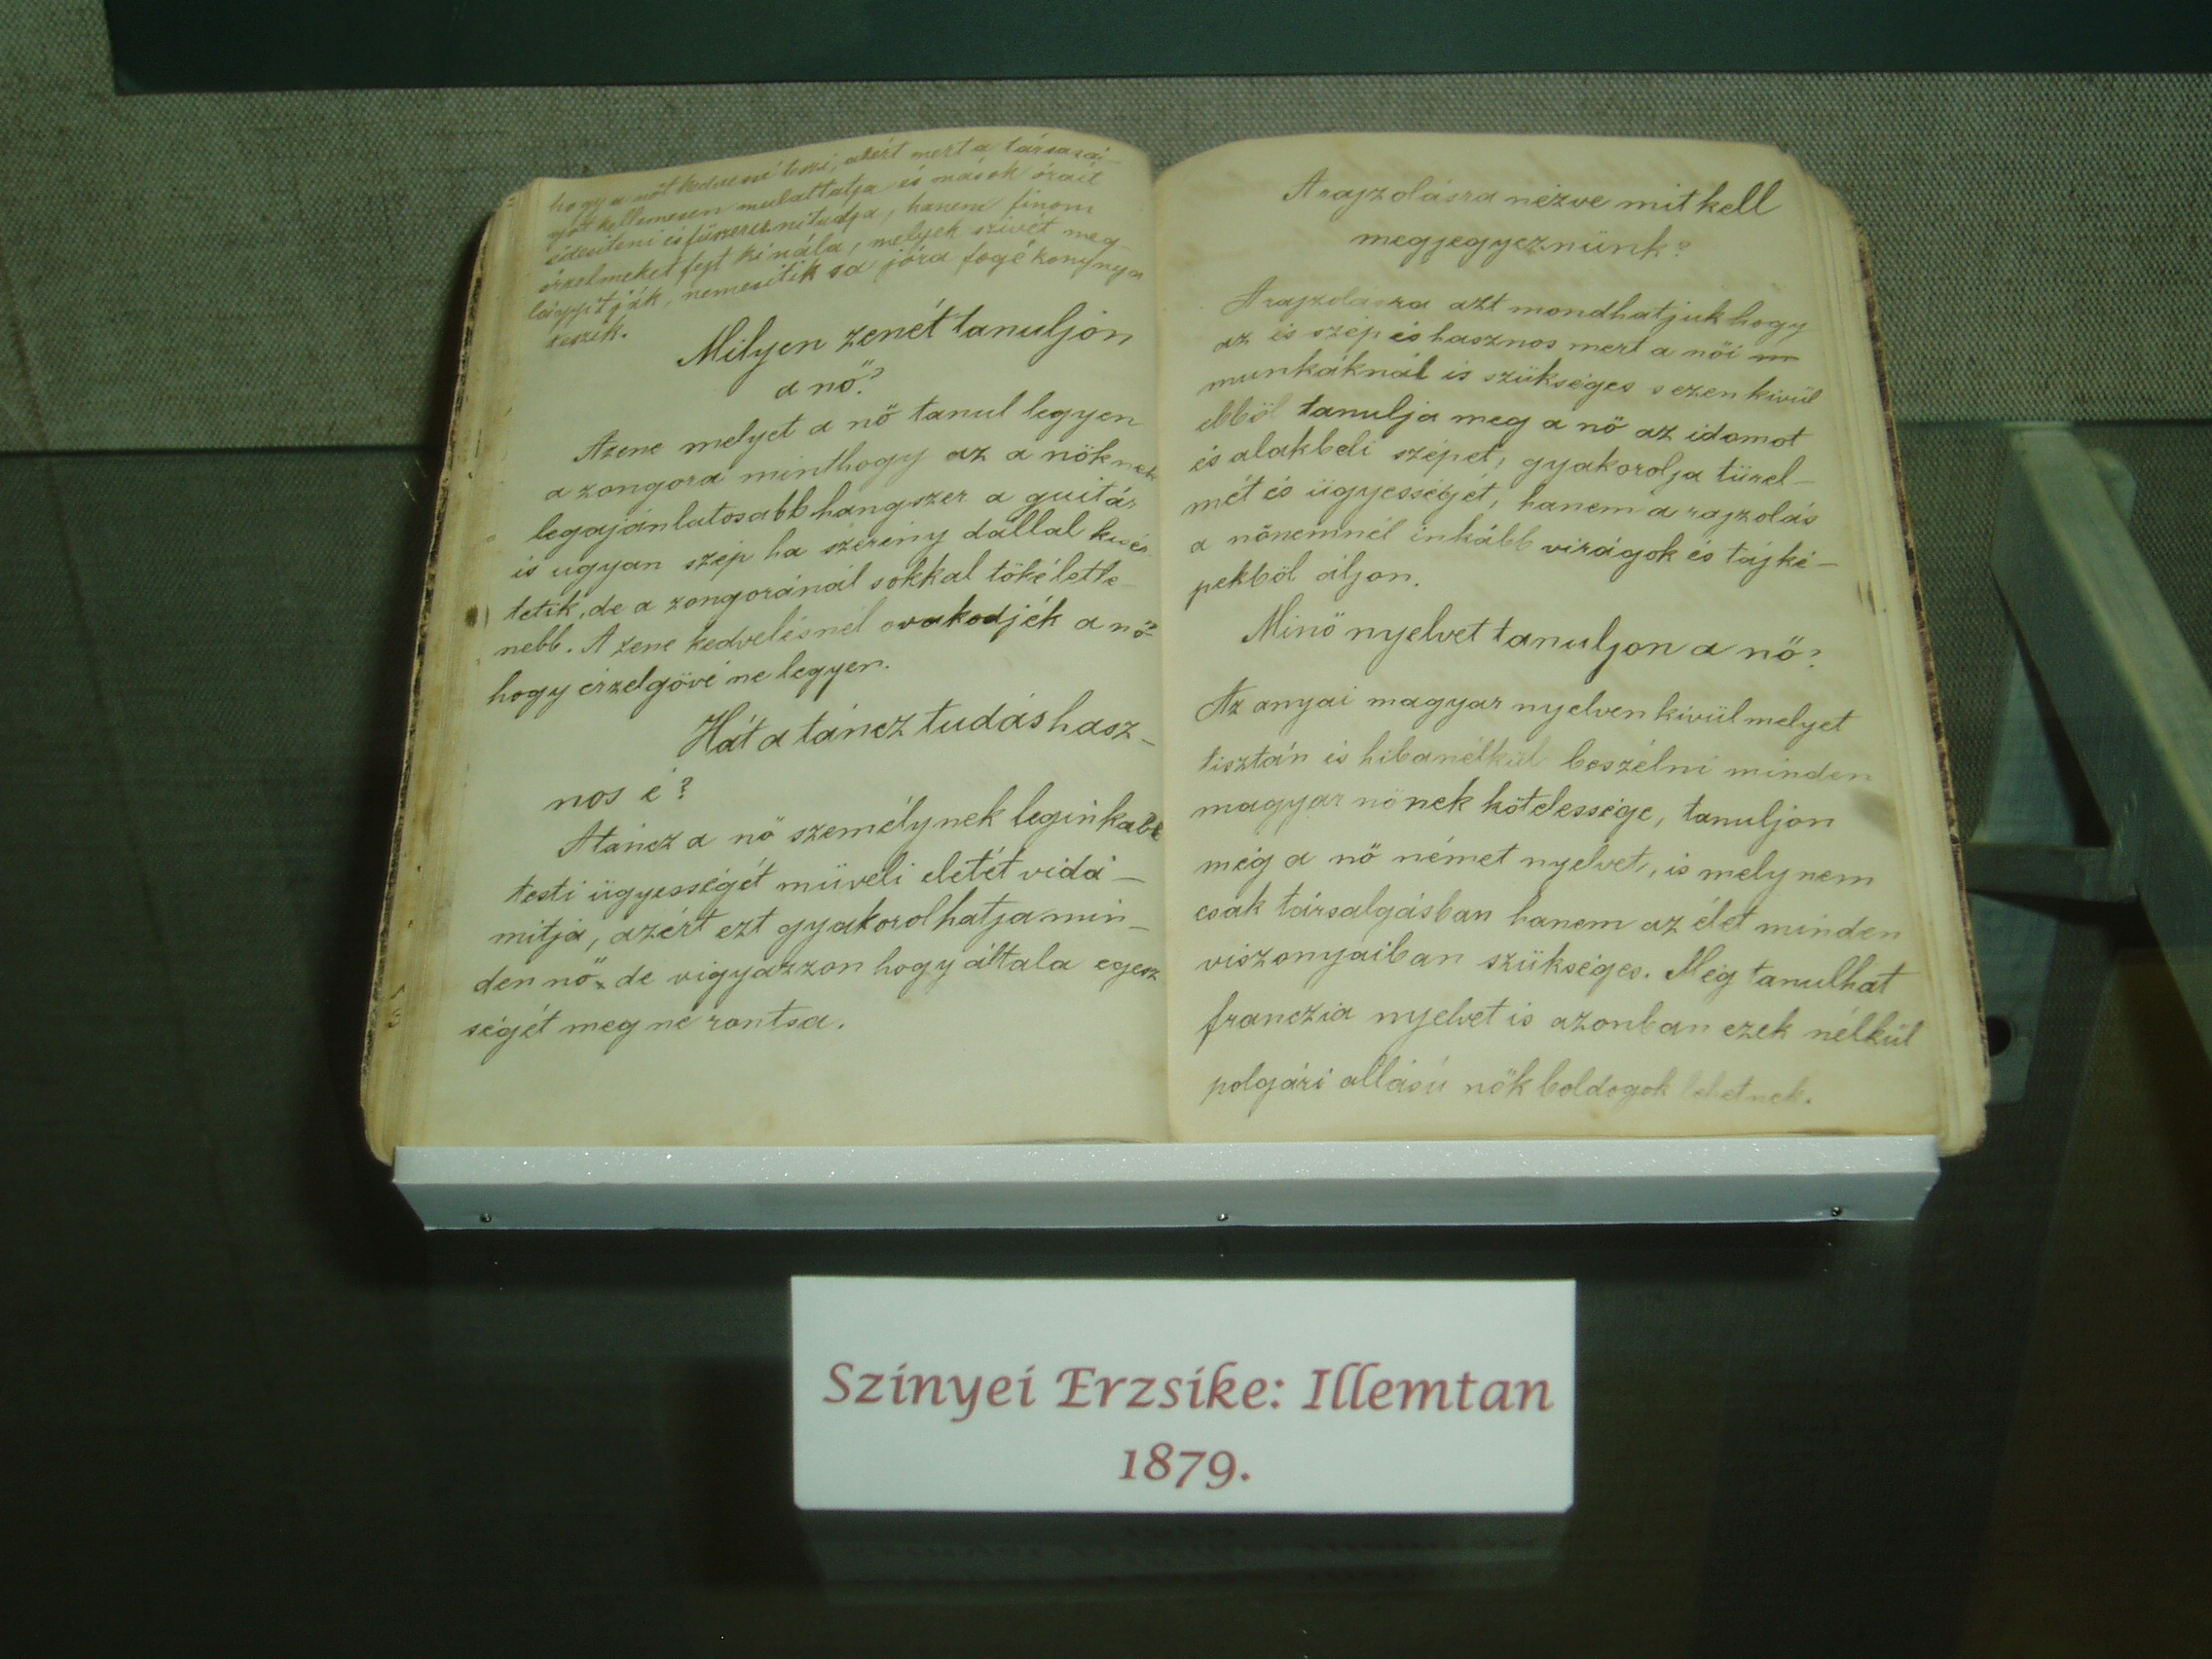 hogy a nőt kedvessé teszi, azért mert a társasá-
got kellemesen mulattatja és mások óráit
édesiteni és füszerezni tudja, hanem finom
érzelmeket fejt ki nála, melyek szivét meg-
lágyitják, nemesitik s a jóra fogékonynya
teszik.
Milyen zenét tanuljon
a nő?
A zene melyet a nő tanul legyen
a zongora minthogy az a nöknek
legajánlatosabb hangszer a guitár
is ugyan szép ha szerény dallal kisér
tetik, de a zongoránál sokkal tökéletle
nebb. A zene kedvelésnél ovakodjék a nő
hogy érzelgövé ne legyen.
Hát a táncz tudás hasz-
nos é?
A táncz a nö személynek leginkabb
testi ügyességét müveli eletét vidá-
mitja, azért ezt gyakorolhatja min-
den nő de vigyazzon hogy általa egesz
ségét meg ne rontsa.
A rajzolásra nézve mit kell
megjegyeznünk?
A rajzolásra azt mondhatjuk hogy
az is szép és hasznos mert a női m
munkáknál is szükséges s ezen kivül
ebből tanulja meg a nö az idomot
és alakbeli szépet, gyakorolja türel-
mét és ügyességét, hanem a rajzolás
a nőnemnél inkább virágok és tájké-
pekből áljon.
Minö nyelvet tanuljon a nö?
Az anyai magyar nyelven kivül melyet
tisztán és hibanélkül beszélni minden
magyar nönek kötelessége, tanuljon
még a nö német nyelvet, is mely nem
csak társalgásban hanem az élet minden
viszonyaiban szükséges. Még tanulhat
franczia nyelvet is azonban ezek nélkül
polgári allású nök boldogok lehetnek.
Szinyei Erzsike: Illemtan
1879.